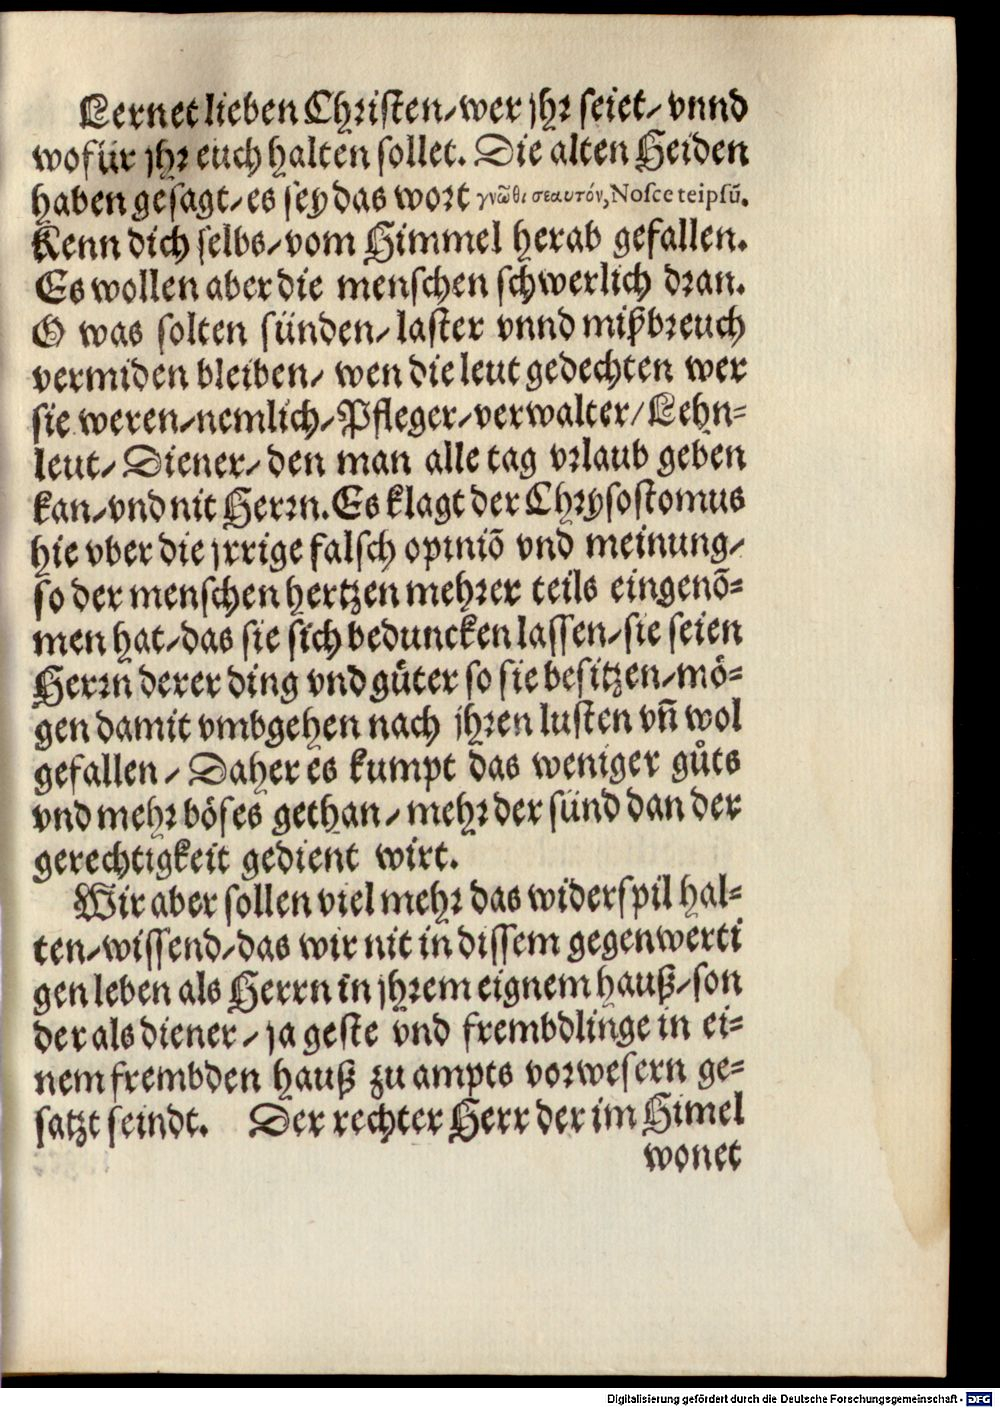 Lernet lieben Christen/ wer jhr seiet/ vnnd
wofür jhr euch halten sollet. Die alten Heiden
haben gesagt/ es sey das wort γνῶθι σεαυτόν, Nosce teipsū.
Kenn dich selbs/ vom Himmel herab gefallen.
Es wollen aber die menschen schwerlich dran.
O was solten sünden/ laster vnnd mißbreuch
vermiden bleiben/ wen die leut gedechten wer
sie weren/ nemlich/ Pfleger/ verwalter/ Lehn-
leut/ Diener/ den man alle tag vrlaub geben
kan/ vnd nit Herrn. Es klagt der Chrysostomus
hie vber die jrrige falsch opiniō vnd meinung/
so der menschen hertzen mehrer teils eingenō-
men hat/ das sie sich beduncken lassen/ sie seien
Herrn derer ding vnd gůter so sie besitzen/ mö-
gen damit vmbgehen nach jhren lusten vñ wol
gefallen/ Daher es kumpt das weniger gůts
vnd mehr böses gethan/ mehr der sünd dan der
gerechtigkeit gedient wirt.
Wir aber sollen viel mehr das widerspil hal-
ten/ wissend/ das wir nit in dissem gegenwerti
gen leben als Herrn in jhrem eignem hauß/ son
der als diener/ ja geste vnd frembdlinge in ei-
nem frembden hauß zu ampts vorwesern ge-
satzt seindt. Der rechter Herr der im Himel
wonet
Digitalisierung gefördert durch die Deutsche Forschungsgemeinschaft - DFG